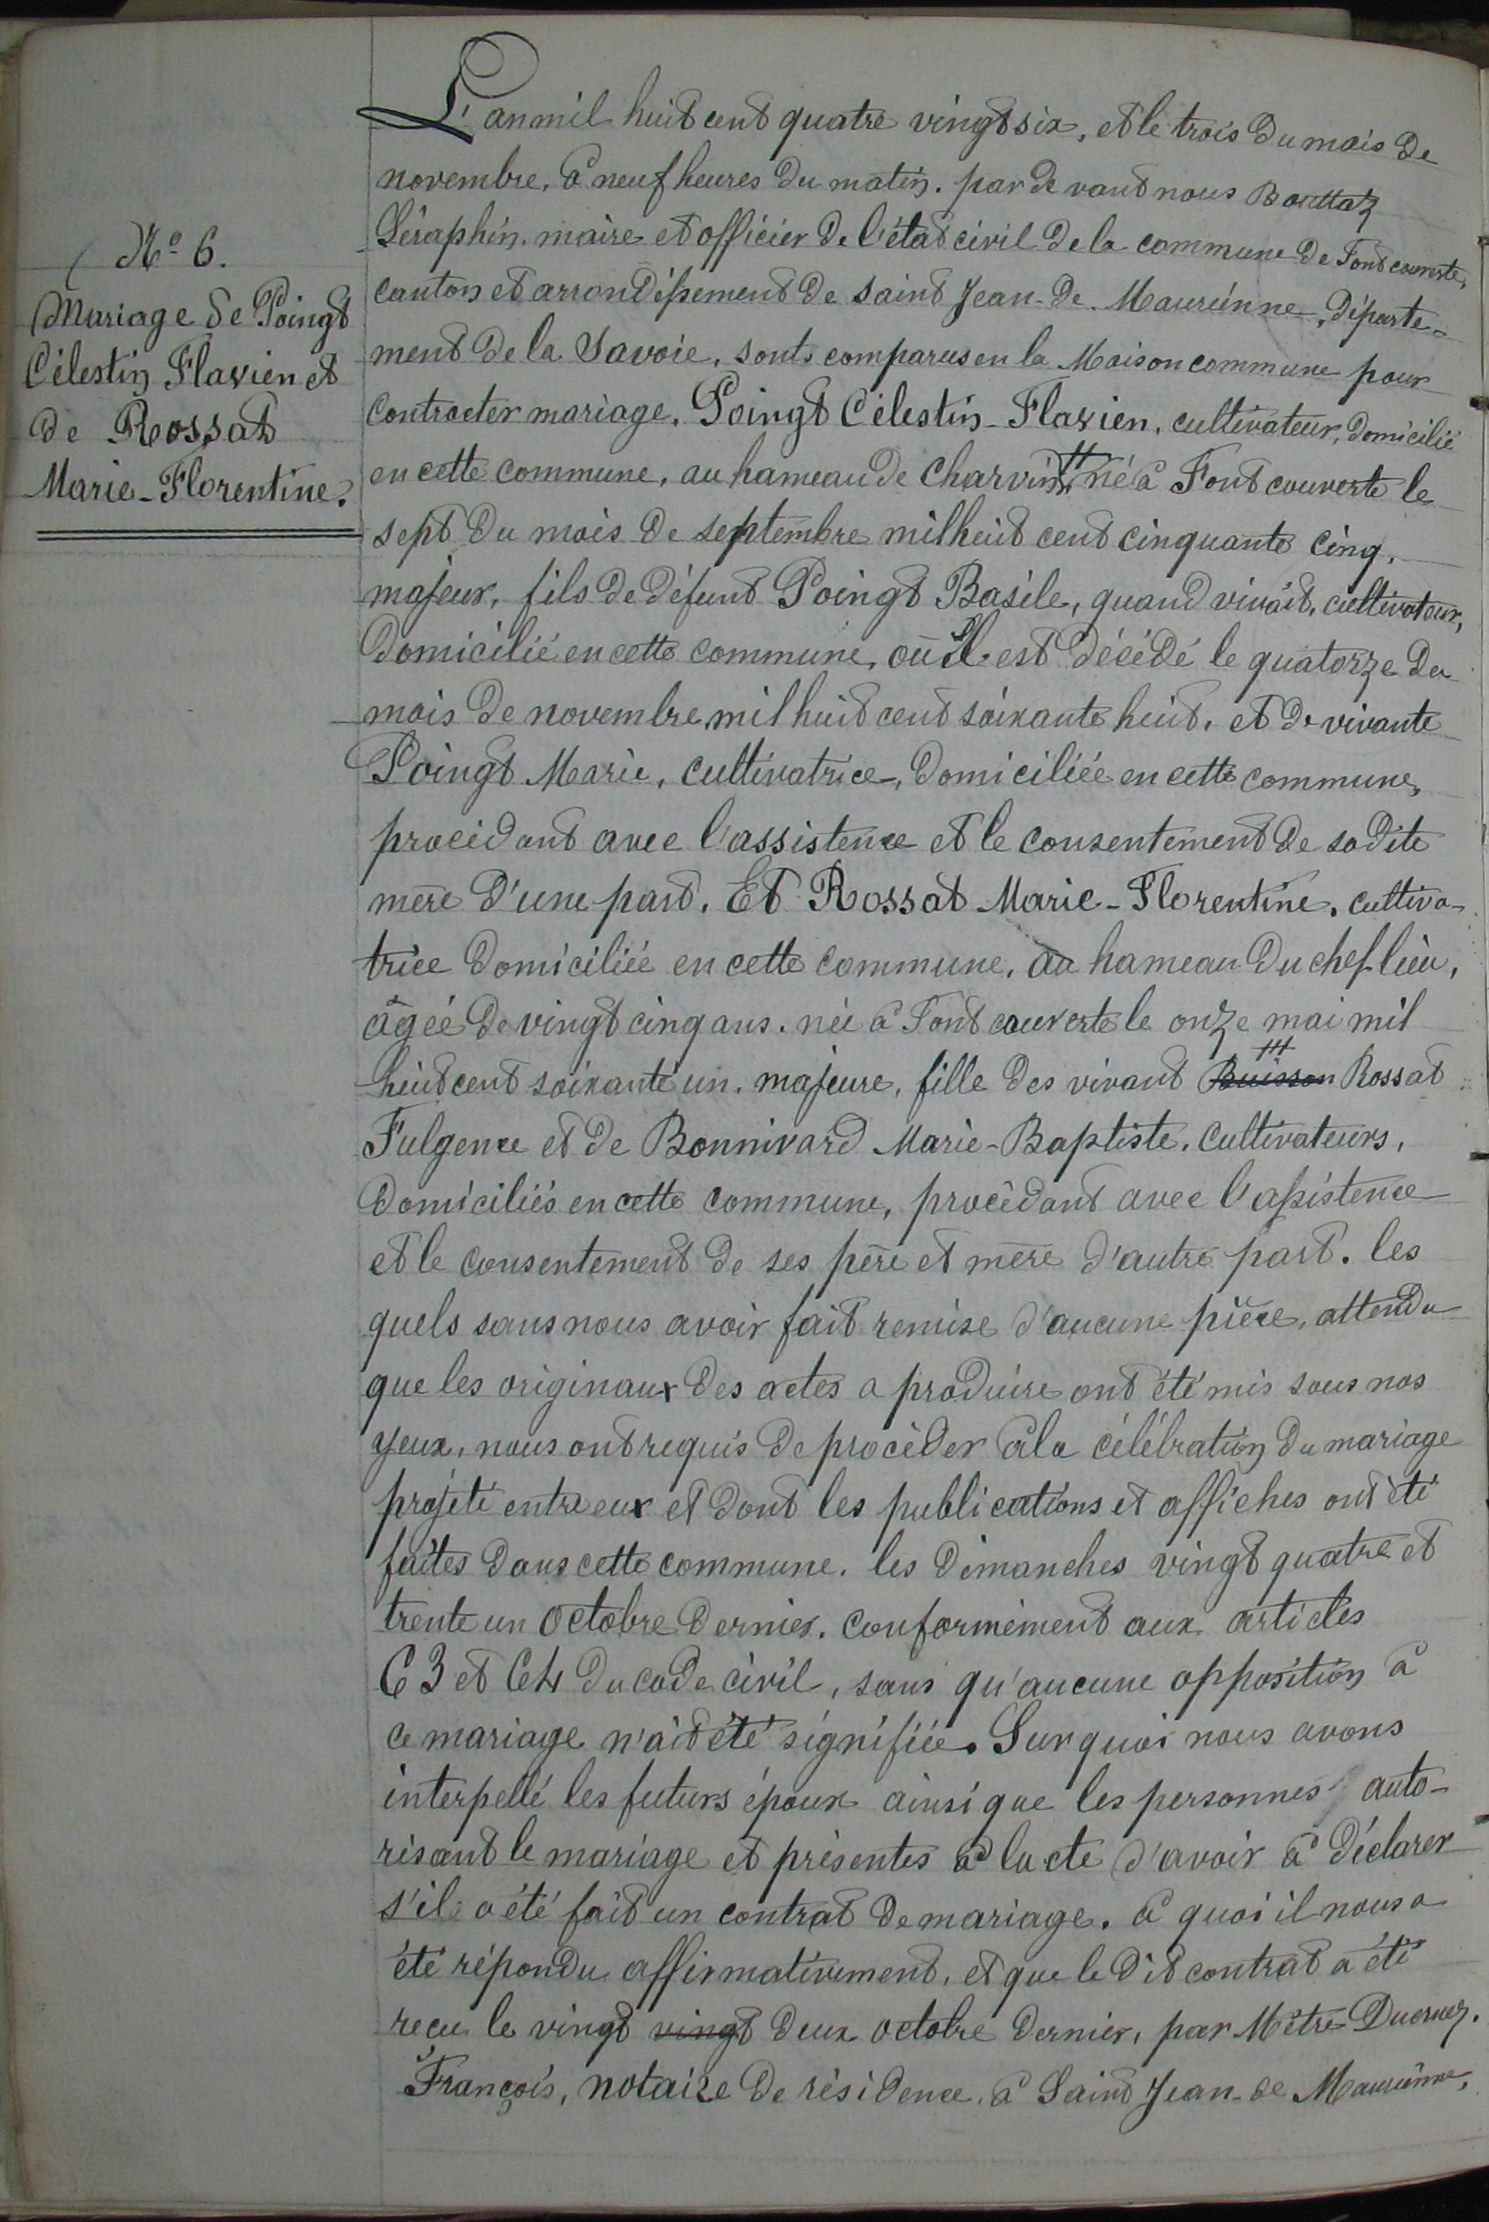 No 6.
Mariage de Poingt
Célestin Flavien et
de Rossat
Marie-Florentine.
L'an mil huit cent quatre vingt six, et le trois du mois de
novembre, à neuf heures du matin. par devant nous Bouttaz
Séraphin, maire et officier de l'état civil de la commune de Fontcouverte,
canton et arrondissement de Saint Jean-de-Maurienne, départe-
ment de la Savoie, sont comparus en la Maison commune pour
contracter mariage. Poingt Célestin-Flavien, cultivateur, domicilié
en cette commune, au hameau de Charvin, né à Fontcouverte le
sept du mois de septembre mil huit cent cinquante cinq,
majeur, fils de défunt Poingt Basile, quand vivait, cultivateur,
domicilié en cette commune, où il est décédé le quatorze du
mois de novembre mil huit cent soixante huit, et de vivante
Poingt Marie, cultivatrice, domiciliée en cette commune,
procédant avec l'assistence et le consentement de sa dite
mère d'une part. Et Rossat Marie-Florentine, cultiva-
trice domiciliée en cette commune, au hameau du chef-lieu,
âgée de vingt cinq ans. née à Fontcouverte le onze mai mil
huit cent soixante un, majeure, fille des vivant Buisson Rossat
Fulgence et de Bonnivard Marie-Baptiste, cultivateurs,
domiciliés en cette commune, procédant avec l'assistence
et le consentement de ses père et mère d'autre part. les
quels sans nous avoir fait remise d'aucune pièce, attendu
que les originaux des actes a produire ont été mis sous nos
yeux, nous ont requis de procéder à la célébration du mariage
projeté entre eux et dont les publications et affiches ont été
faites dans cette commune. les dimanches vingt quatre et
trente un octobre dernier. conformément aux articles
63 et 64 du code civil, sans qu'aucune opposition à
ce mariage n'ait été signifiée. Sur quoi nous avons
interpellé les futurs époux ainsi que les personnes auto-
risant le mariage et présentes à l'acte d'avoir à déclarer
s'il a été fait un contrat de mariage. à quoi il nous a
été répondu affirmativement, et que le dit contrat a été
reçu le vingt vingt deux octobre dernier, par Mètre Ducruez
François, notaire de résidence, à Saint Jean-de Maurienne,